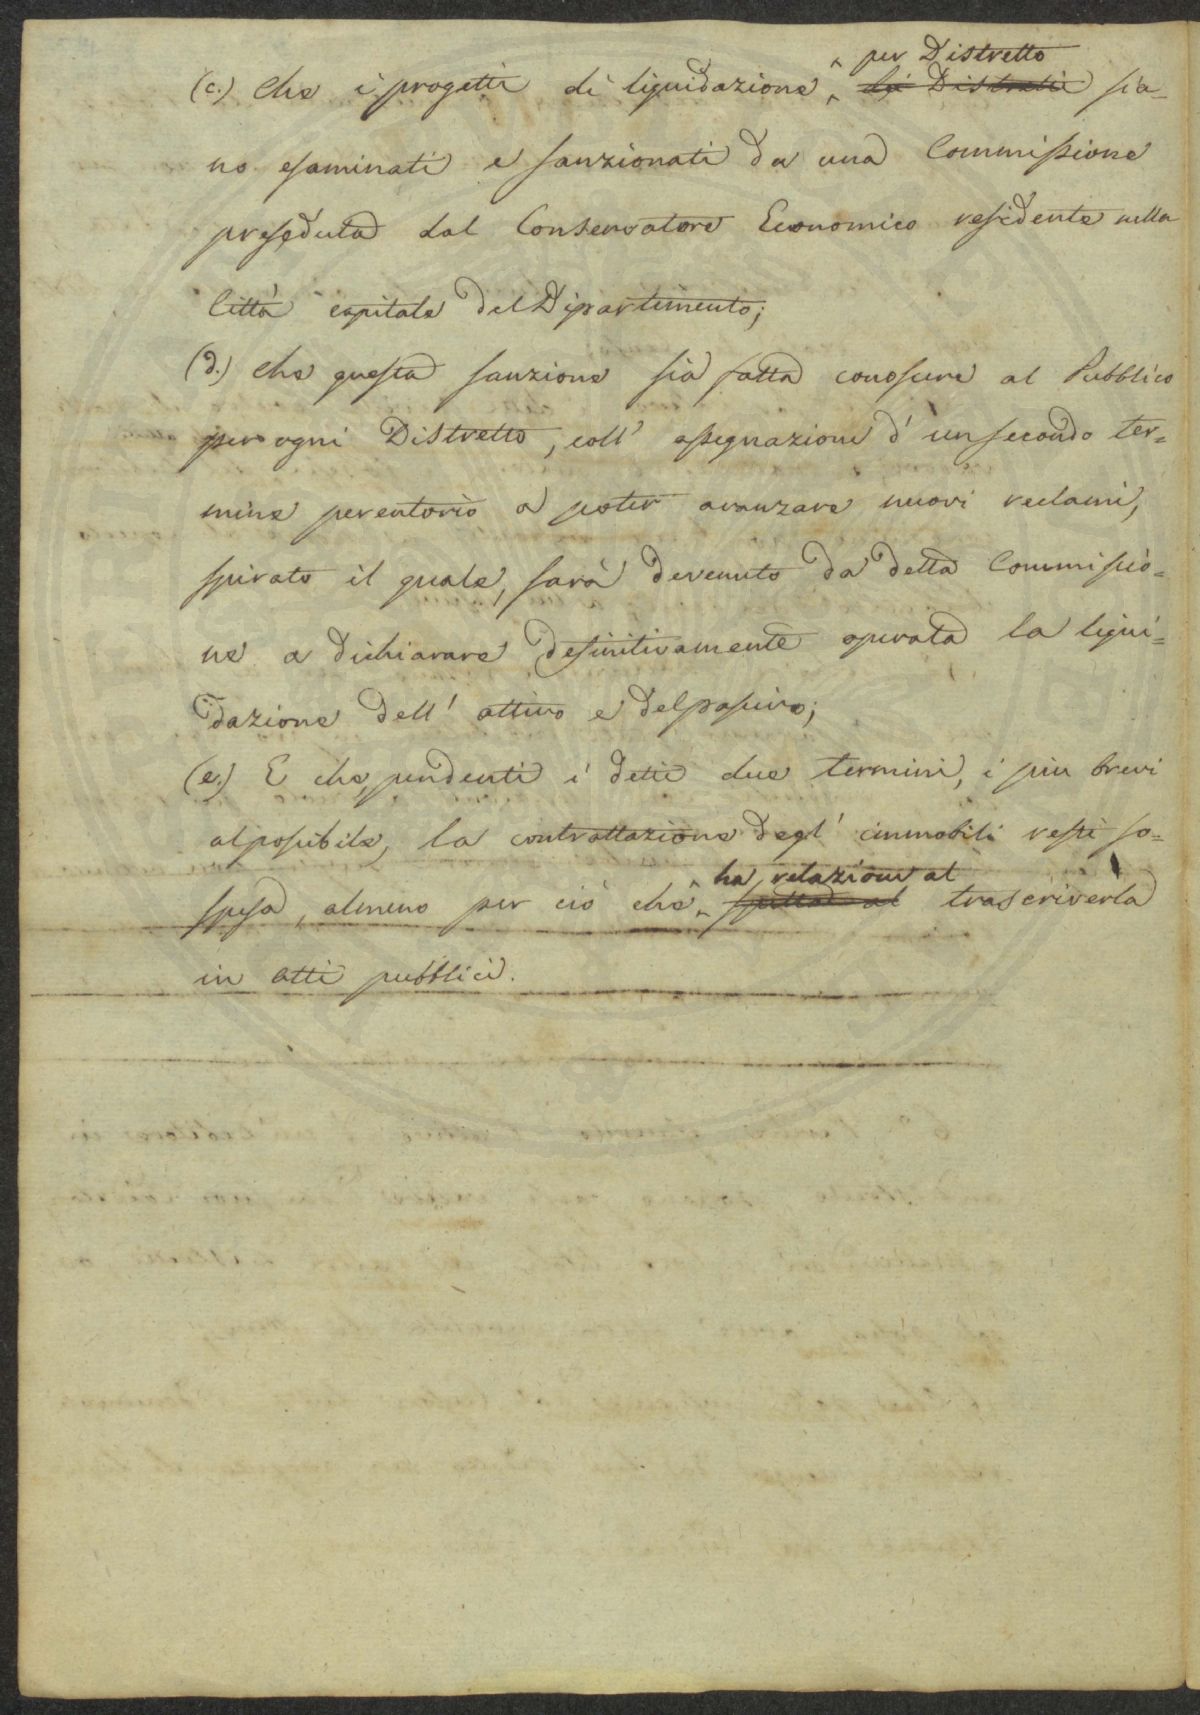 (c.) Che i progetti di liquidazione, per Distretto sia-
no esaminati e sanzionati da una Commissione
preseduta dal Conservatore Economico residente nella
Città capitale del Dipartimento;
(d.) Che questa sanzione sia fatta conoscere al Pubblico
per ogni Distretto, coll' assegnazione d' un secondo ter=
mine perentorio a poter avanzare nuovi reclami,
spirato il quale, sarà devenuto da detta Commissio=
ne a dichiarare definitivamente operata la liqui=
dazione dell' attivo e del passivo;
(e.) E che, pendenti i detti due termini, i più brevi
al possibile, la contrattazione degl' immobili resti so=
spesa, almeno per ciò che ha relazione al spetta al trascriverla
in atti pubblici.